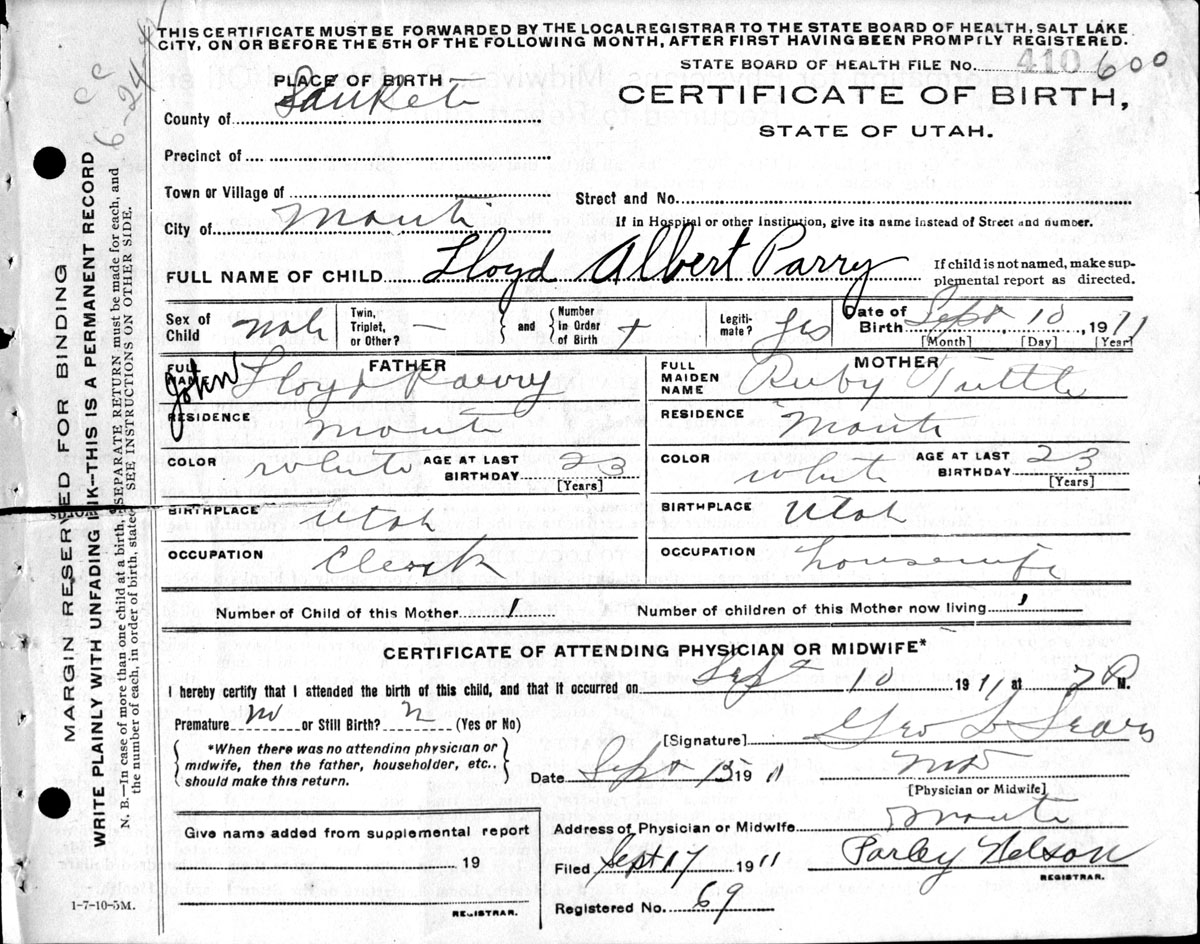 THIS CERTIFICATE MUST BE FORWARDED BY THE LOCAL REGISTRAR TO THE STATE BOARD OF HEALTH, SALT LAKE
CITY, ON OR BEFORE THE 5TH OF THE FOLLOWING MONTH, AFTER FIRST HAVING BEEN PROMPTLY REGISTERED.
STATE BOARD OF HEALTH FILE No. 410 600
CERTIFICATE OF BIRTH,
STATE OF UTAH.
6-24-
PLACE OF BIRTH—
County of Sanpete
Precinct of
Town or Village of
Street and No.
City of Manti
If in Hospital or other Institution, give its name instead of Street and number.
FULL NAME OF CHILD Lloyd Albert Parry
If child is not named, make sup-
plemental report as directed.
Sex of Child Male
Twin, Triplet, or Other? —
and
Number in Order of Birth
Legiti- mate? Yes
Date of Birth Sept 10, 1911
[Month] [Day] [Year]
FATHER
FULL NAME John Lloyd Parry
RESIDENCE Manti
COLOR White AGE AT LAST BIRTHDAY 23
[Years]
BIRTHPLACE Utah
OCCUPATION Clerk
MOTHER
FULL MAIDEN NAME Ruby Tuttle
RESIDENCE Manti
COLOR White AGE AT LAST BIRTHDAY 23
[Years]
BIRTHPLACE Utah
OCCUPATION Housewife
Number of Child of this Mother 1 Number of children of this Mother now living 1
CERTIFICATE OF ATTENDING PHYSICIAN OR MIDWIFE*
I hereby certify that I attended the birth of this child, and that it occurred on Sept 10 1911 at 7 P M.
Premature No or Still Birth? N (Yes or No)
*When there was no attending physician or
midwife, then the father, householder, etc.,
should make this return.
[Signature] Geo L Sears
Date Sept 15 1911 MD
[Physician or Midwife]
Give name added from supplemental report
19
REGISTRAR.
Address of Physician or Midwife Manti
Filed Sept 17 1911 Parley Nelson
REGISTRAR.
Registered No. 69
1-7-10-5M.
MARGIN RESERVED FOR BINDING
WRITE PLAINLY WITH UNFADING INK—THIS IS A PERMANENT RECORD
N. B.—In case of more than one child at a birth, a SEPARATE RETURN must be made for each, and
the number of each, in order of birth, stated. SEE INSTRUCTIONS ON OTHER SIDE.